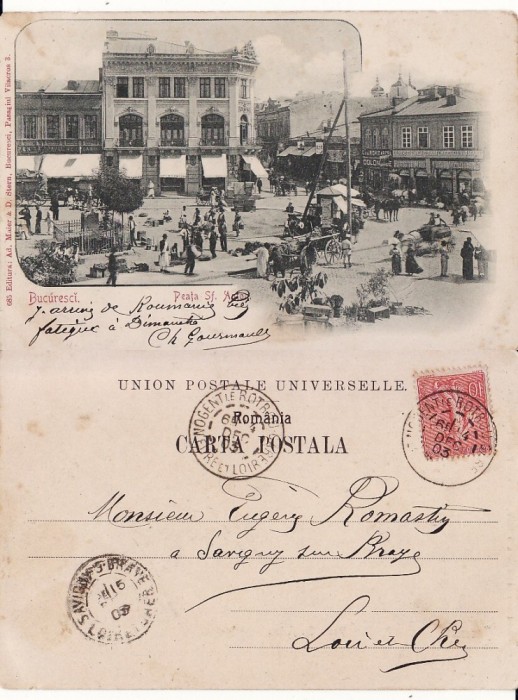 685 Editura: Ad. Maier & D. Stern, Bucuresci, Pasagiul Villacros 3.
Bucuresci.
Peața Sf. Anton
J'arrive de Roumanie
fatigué à Dimanche
Ch Gourmault
UNION POSTALE UNIVERSELLE.
România
CARTA POSTALA
NOGENT LE ROTROU
DEC
03
EURE ET LOIR
10
NOGENT LE ROT
DEC
03
Monsieur Eugène Romastin
a Savigny sur Braye
Loir et Cher
SAVIGNY S BRAYE
LOIR ET CHER